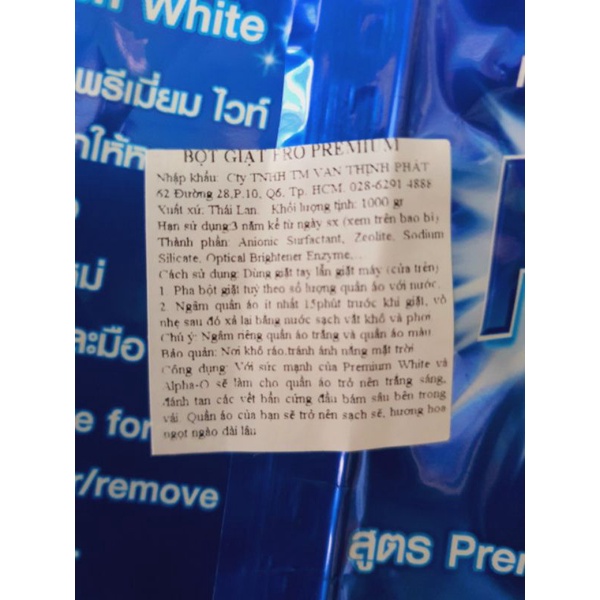 m White
พรีเมี่ยม ไวท์
BỘT GIẶT PRO PREMIUM
Nhập khẩu: Cty TNHH TM VẠN THỊNH PHÁT
62 Đường 28,P.10, Q6, Tp. HCM. 028-6291 4888
Xuất xứ: Thái Lan. Khối lượng tịnh: 1000 gr
Hạn sử dụng:3 năm kể từ ngày sx (xem trên bao bì)
Thành phần: Anionic Surfactant, Zeolite, Sodium
Silicate, Optical Brightener Enzyme,...
Cách sử dụng: Dùng giặt tay lẫn giặt máy (cửa trên)
1. Pha bột giặt tuỳ theo số lượng quần áo với nước.
2. Ngâm quần áo ít nhất 15phút trước khi giặt, vò
nhẹ sau đó xả lại bằng nước sạch vắt khô và phơi
Chú ý: Ngâm riêng quần áo trắng và quần áo màu
Bảo quản: Nơi khô ráo,tránh ánh nắng mặt trời
Công dụng: Với sức mạnh của Premium White và
Alpha-O sẽ làm cho quần áo trở nên trắng sáng,
đánh tan các vết bẩn cứng đầu bám sâu bên trong
vải. Quần áo của bạn sẽ trở nên sạch sẽ, hương hoa
ngọt ngào dài lâu
ละมือ
e for
r/remove
สูตร Pre